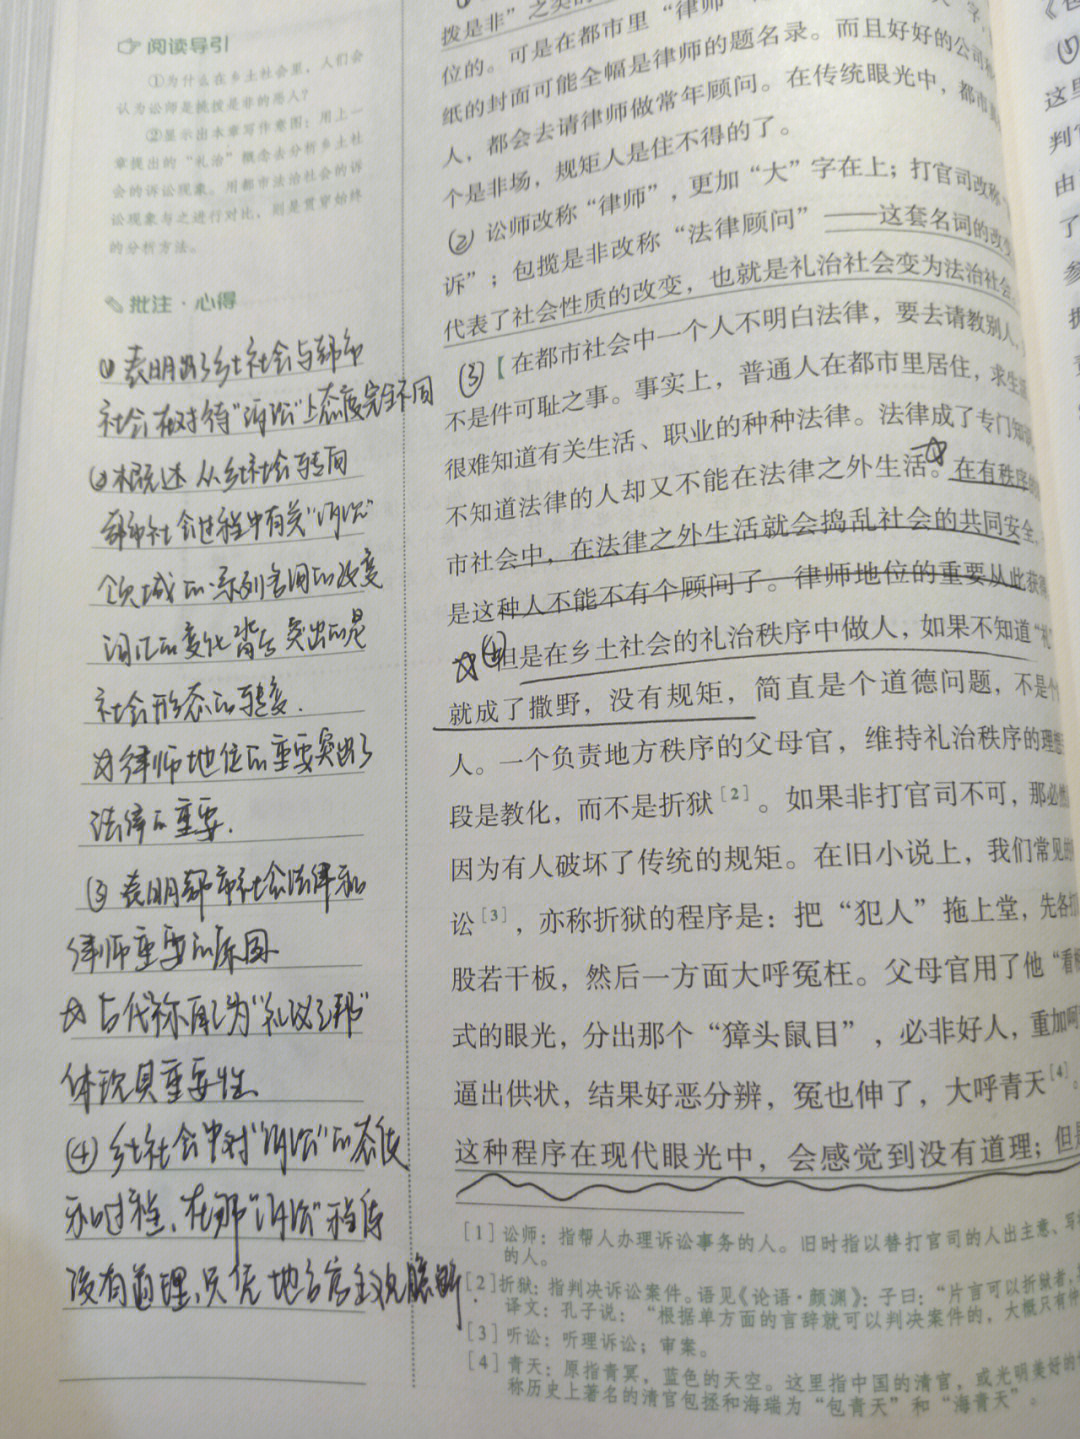 阅读导引
①为什么在乡土社会里，人们会
认为讼师是挑拨是非的恶人？
②显示出本章写作意图：用上一
章提出的“礼治”概念去分析乡土社
会的诉讼现象。用都市法治社会的诉
讼现象与之进行对比，则是贯穿始终
的分析方法。
批注·心得
① 表明出了乡土社会与都市
社会在对待“诉讼”上态度完全不同
② 概述从乡土社会转向
都市社会过程中有关“诉讼”
领域的系列名词的改变
词汇的变化背后突出的是
社会形态的转变.
☆ 律师地位的重要突出了
法律的重要.
③ 表明都市社会法律和
律师重要的原因
☆ 古代称 为“礼仪之邦”
体现具重要性
④ 乡土社会中对“诉讼”的态度
和过程、在那“诉讼”
没有道理,只凭地方官主观臆断.
拨是非”之类的
位的。可是在都市里“律师
纸的封面可能全幅是律师的题名录。而且好好的公司
人，都会去请律师做常年顾问。在传统眼光中，都市
个是非场，规矩人是住不得的了。
② 讼师改称“律师”，更加“大”字在上；打官司改称
诉”；包揽是非改称“法律顾问”——这套名词的改变
代表了社会性质的改变，也就是礼治社会变为法治社会
③【在都市社会中一个人不明白法律，要去请教别人，
不是件可耻之事。事实上，普通人在都市里居住，求生
很难知道有关生活、职业的种种法律。法律成了专门知识
不知道法律的人却又不能在法律之外生活。☆在有秩序
市社会中，在法律之外生活就会捣乱社会的共同安全，
是这种人不能不有个顾问了。律师地位的重要从此获得
☆④但是在乡土社会的礼治秩序中做人，如果不知道“礼
就成了撒野，没有规矩，简直是个道德问题，不是个
人。一个负责地方秩序的父母官，维持礼治秩序的理想
段是教化，而不是折狱[2]。如果非打官司不可，那必然
因为有人破坏了传统的规矩。在旧小说上，我们常见的
讼[3]，亦称折狱的程序是：把“犯人”拖上堂，先各打
股若干板，然后一方面大呼冤枉。父母官用了他“看相
式的眼光，分出那个“獐头鼠目”，必非好人，重加呵
逼出供状，结果好恶分辨，冤也伸了，大呼青天[4]。
这种程序在现代眼光中，会感觉到没有道理；但是
[1]讼师：指帮人办理诉讼事务的人。旧时指以替打官司的人出主意、写
的人。
[2]折狱：指判决诉讼案件。语见《论语·颜渊》：子曰：“片言可以折狱者，
译文：孔子说：“根据单方面的言辞就可以判决案件的，大概只有仲
[3]听讼：听理诉讼；审案。
[4]青天：原指青冥，蓝色的天空。这里指中国的清官，或光明美好的
称历史上著名的清官包拯和海瑞为“包青天”和“海青天”。
这里
判官
由
了
参